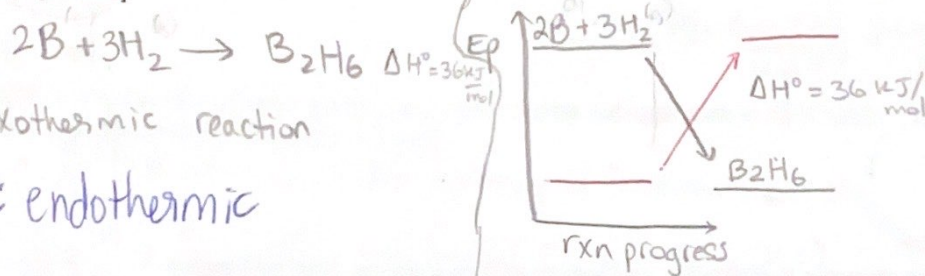 2B + 3H₂ → B₂H₆ ΔH° = 36 kJ/mol
xothermic reaction
: endothermic
Ep
2B + 3H₂
ΔH° = 36 kJ/mol
B₂H₆
rxn progress